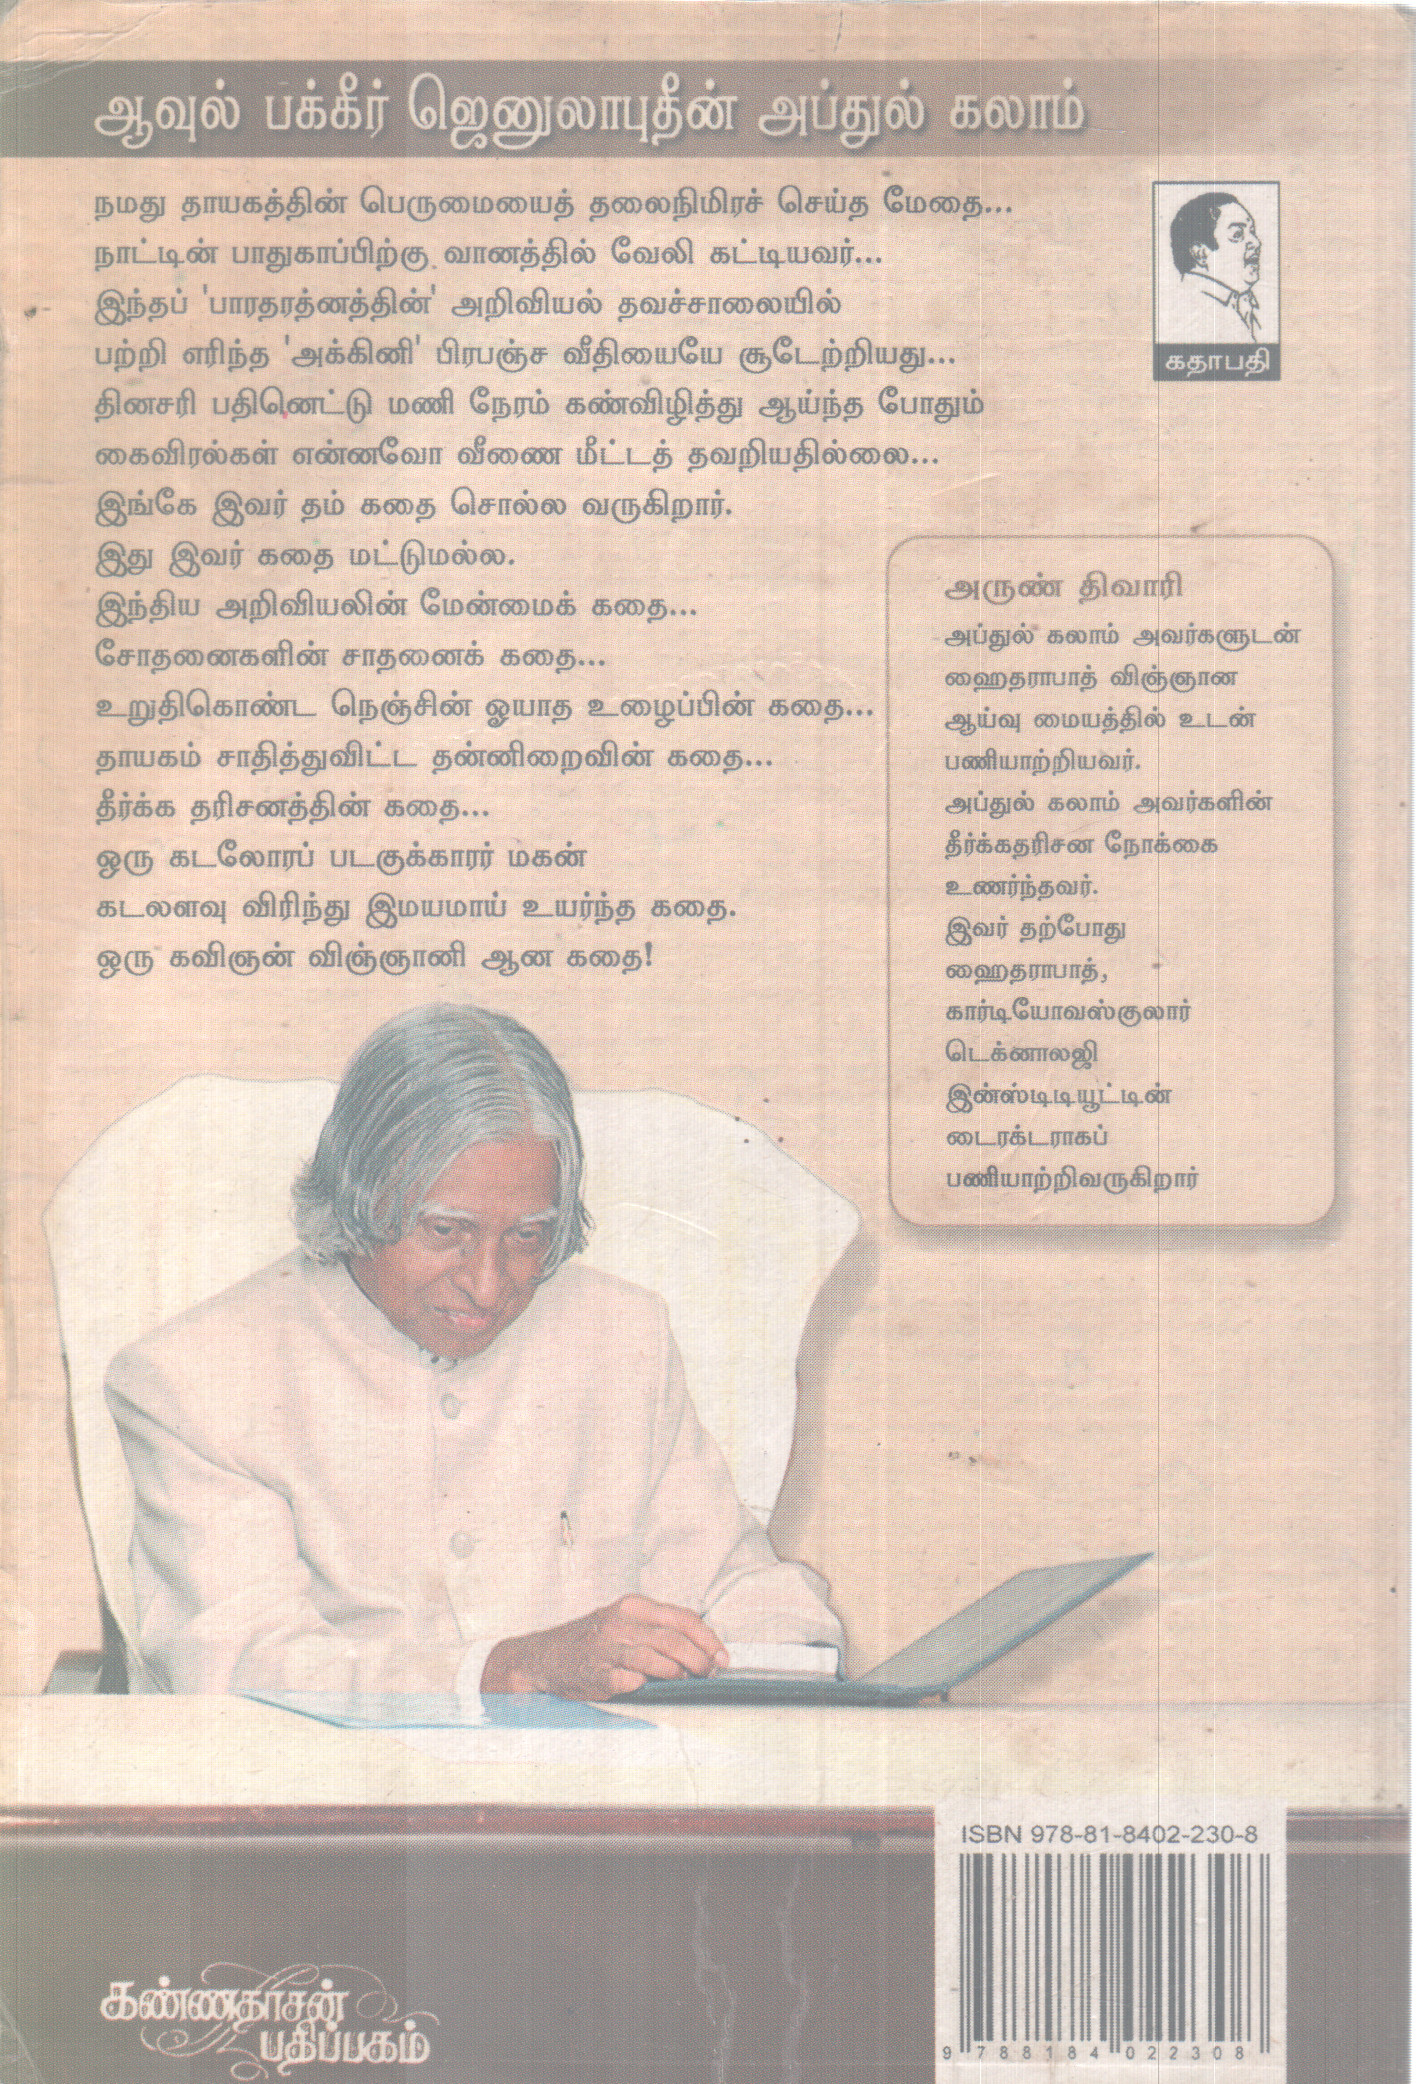 ஆவுல் பக்கீர் ஜெனுலாபுதீன் அப்துல் கலாம்
நமது தாயகத்தின் பெருமையைத் தலைநிமிரச் செய்த மேதை...
நாட்டின் பாதுகாப்பிற்கு வானத்தில் வேலி கட்டியவர்...
இந்தப் 'பாரதரத்னத்தின்' அறிவியல் தவச்சாலையில்
பற்றி எரிந்த 'அக்கினி' பிரபஞ்ச வீதியையே சூடேற்றியது...
தினசரி பதினெட்டு மணி நேரம் கண்விழித்து ஆய்ந்த போதும்
கைவிரல்கள் என்னவோ வீணை மீட்டத் தவறியதில்லை...
இங்கே இவர் தம் கதை சொல்ல வருகிறார்.
இது இவர் கதை மட்டுமல்ல.
இந்திய அறிவியலின் மேன்மைக் கதை...
சோதனைகளின் சாதனைக் கதை...
உறுதிகொண்ட நெஞ்சின் ஓயாத உழைப்பின் கதை...
தாயகம் சாதித்துவிட்ட தன்னிறைவின் கதை...
தீர்க்க தரிசனத்தின் கதை...
ஒரு கடலோரப் படகுக்காரர் மகன்
கடலளவு விரிந்து இமயமாய் உயர்ந்த கதை.
ஒரு கவிஞன் விஞ்ஞானி ஆன கதை!
கதாபதி
அருண் திவாரி
அப்துல் கலாம் அவர்களுடன்
ஹைதராபாத் விஞ்ஞான
ஆய்வு மையத்தில் உடன்
பணியாற்றியவர்.
அப்துல் கலாம் அவர்களின்
தீர்க்கதரிசன நோக்கை
உணர்ந்தவர்.
இவர் தற்போது
ஹைதராபாத்,
கார்டியோவஸ்குலார்
டெக்னாலஜி
இன்ஸ்டிடியூட்டின்
டைரக்டராகப்
பணியாற்றிவருகிறார்
ISBN 978-81-8402-230-8
9 788184 022308
கண்ணதாசன்
பதிப்பகம்